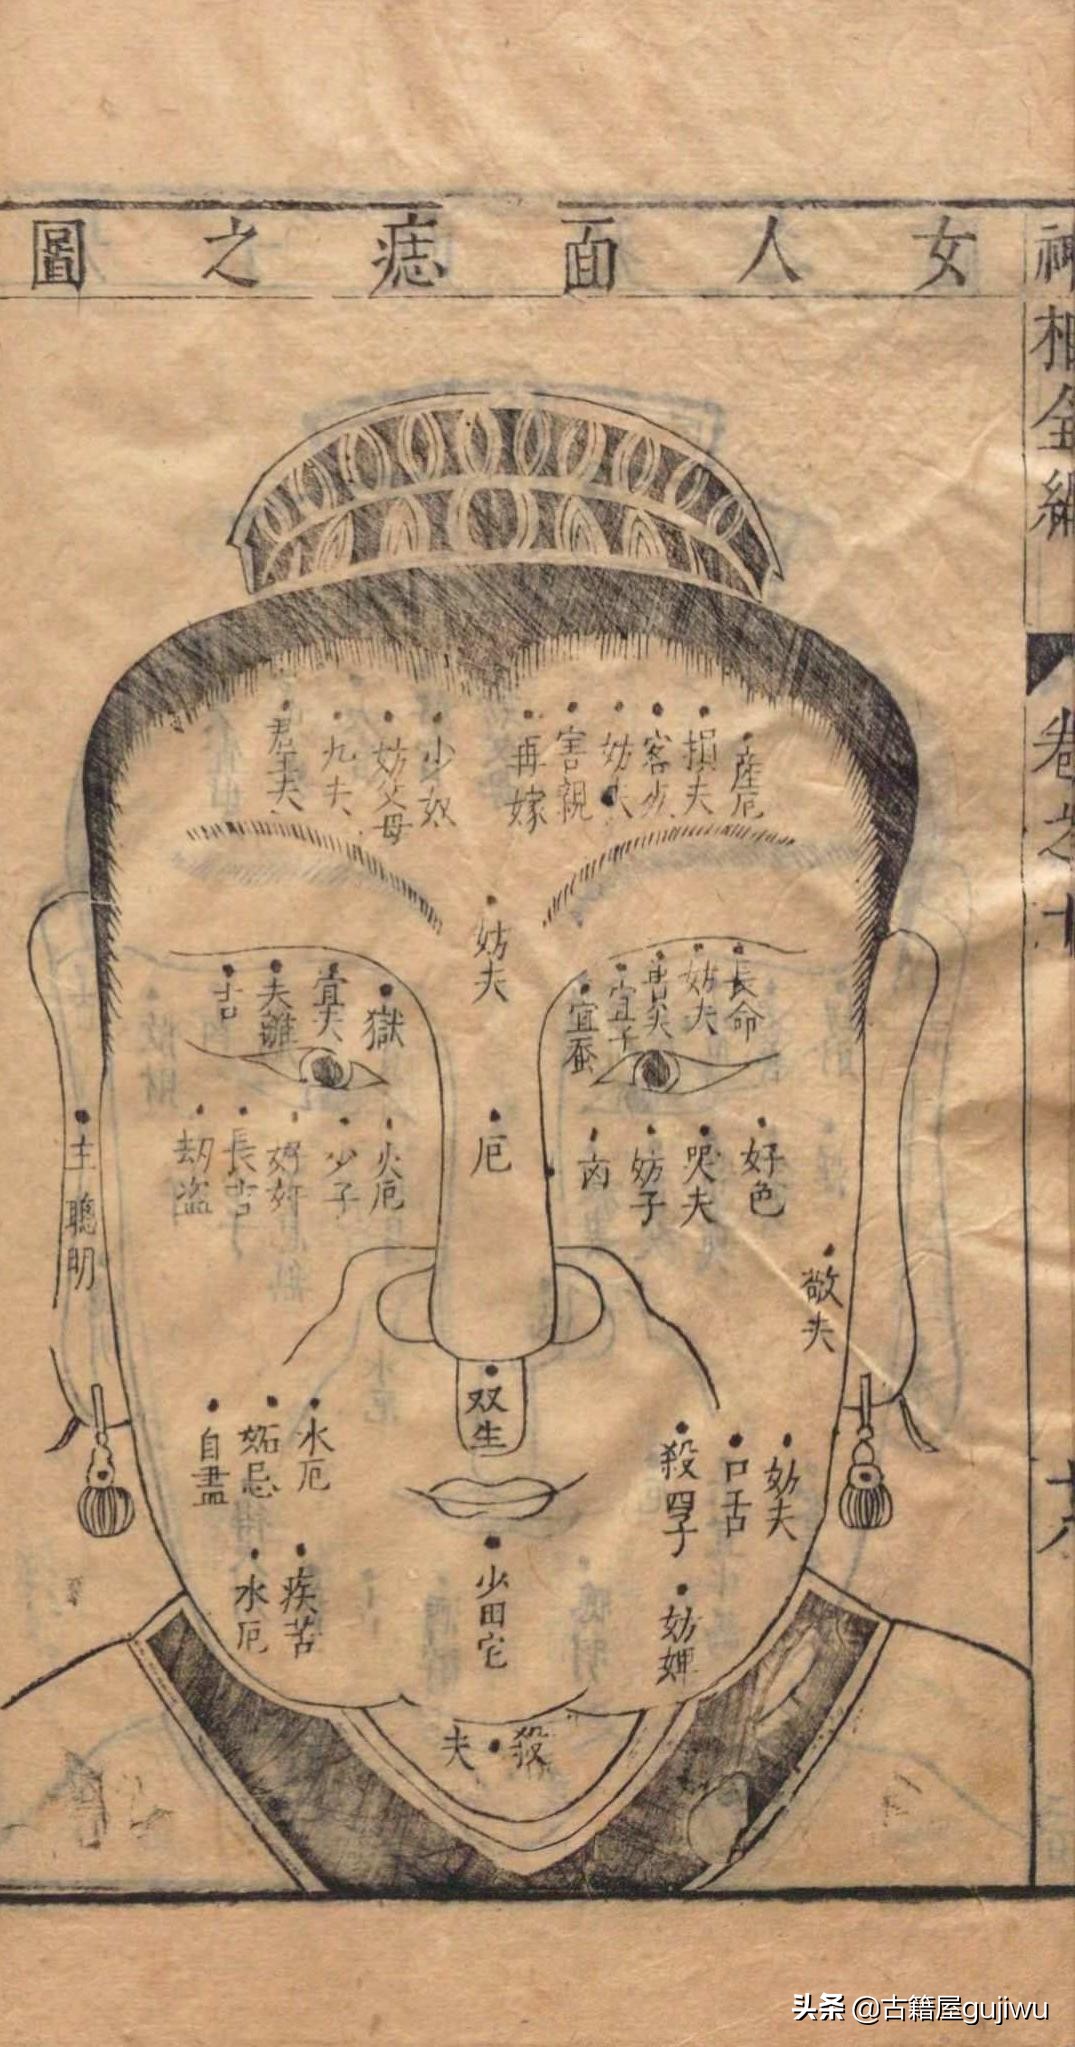 女人面痣之圖
神相全編
卷之十
十八
產厄
損夫
客死
妨夫
害親
再嫁
少奴
妨父母
九夫
君王夫
妨夫
長命
妨夫
宜子
宜蚕
獄
夫離
吉
厄
好色
哭夫
妨子
火厄
少子
長吉
劫盗
主聰明
双生
妨夫
口舌
殺四子
水厄
妬忌
自盡
少田宅
疾苦
水厄
殺夫
头条 @古籍屋gujiwu